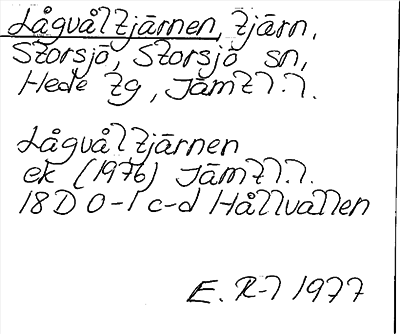 Lågvåltjärnen, tjärn,
Storsjö, Storsjö sn,
Hede tg, Jämtl.l.
Lågvåltjärnen
ek (1976) Jämtl.l.
18D 0-1 c-d Hållvallen
E. R-l 1977